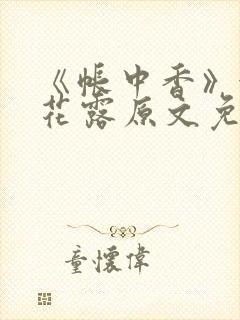 《帐中香》
花露原文免
童懷偉